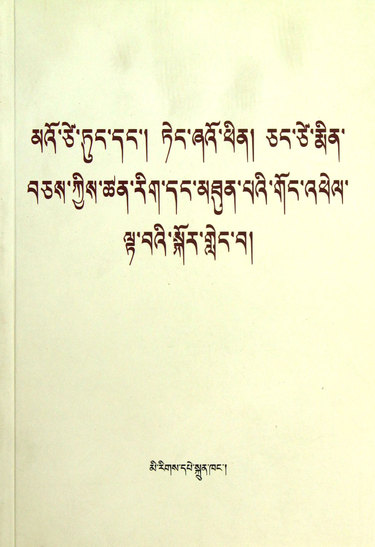 མའོ་ཙེ་ཏུང་དང་། ཏེང་ཞའོ་ཕིན། ཅང་ཙེ་མིན་
བཅས་ཀྱིས་ཚན་རིག་དང་མཐུན་པའི་གོང་འཕེལ་
ལྟ་བའི་སྐོར་གླེང་བ།
མི་རིགས་དཔེ་སྐྲུན་ཁང་།